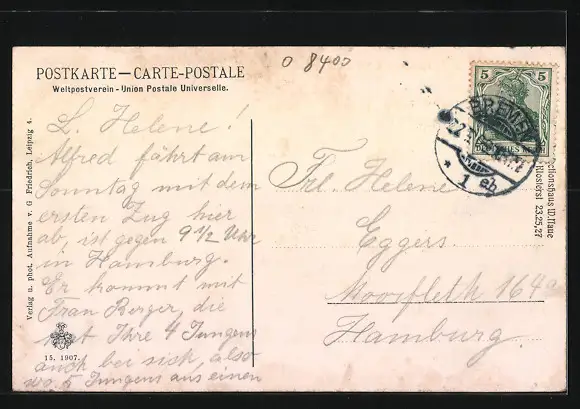 o 8400
POSTKARTE — CARTE-POSTALE
Weltpostverein - Union Postale Universelle.
L. Helene!
Alfred fährt am
Sonntag mit dem
ersten Zug hier
ab, ist gegen 9 1/2 Uhr
in Hamburg.
Er kommt mit
Frau Berger, die
hat Ihre 4 Jungens
auch bei sich, also
wo 5 Jungens aus einen
Verlag u. phot. Aufnahme v. G. Friedrich, Leipzig 4.
15. 1907.
5 5
BREMEN
* 1 eb
Frl. Helene
Eggers.
Moorfleth 164a
Hamburg.
W. Haue
Klosterst 23.25.27